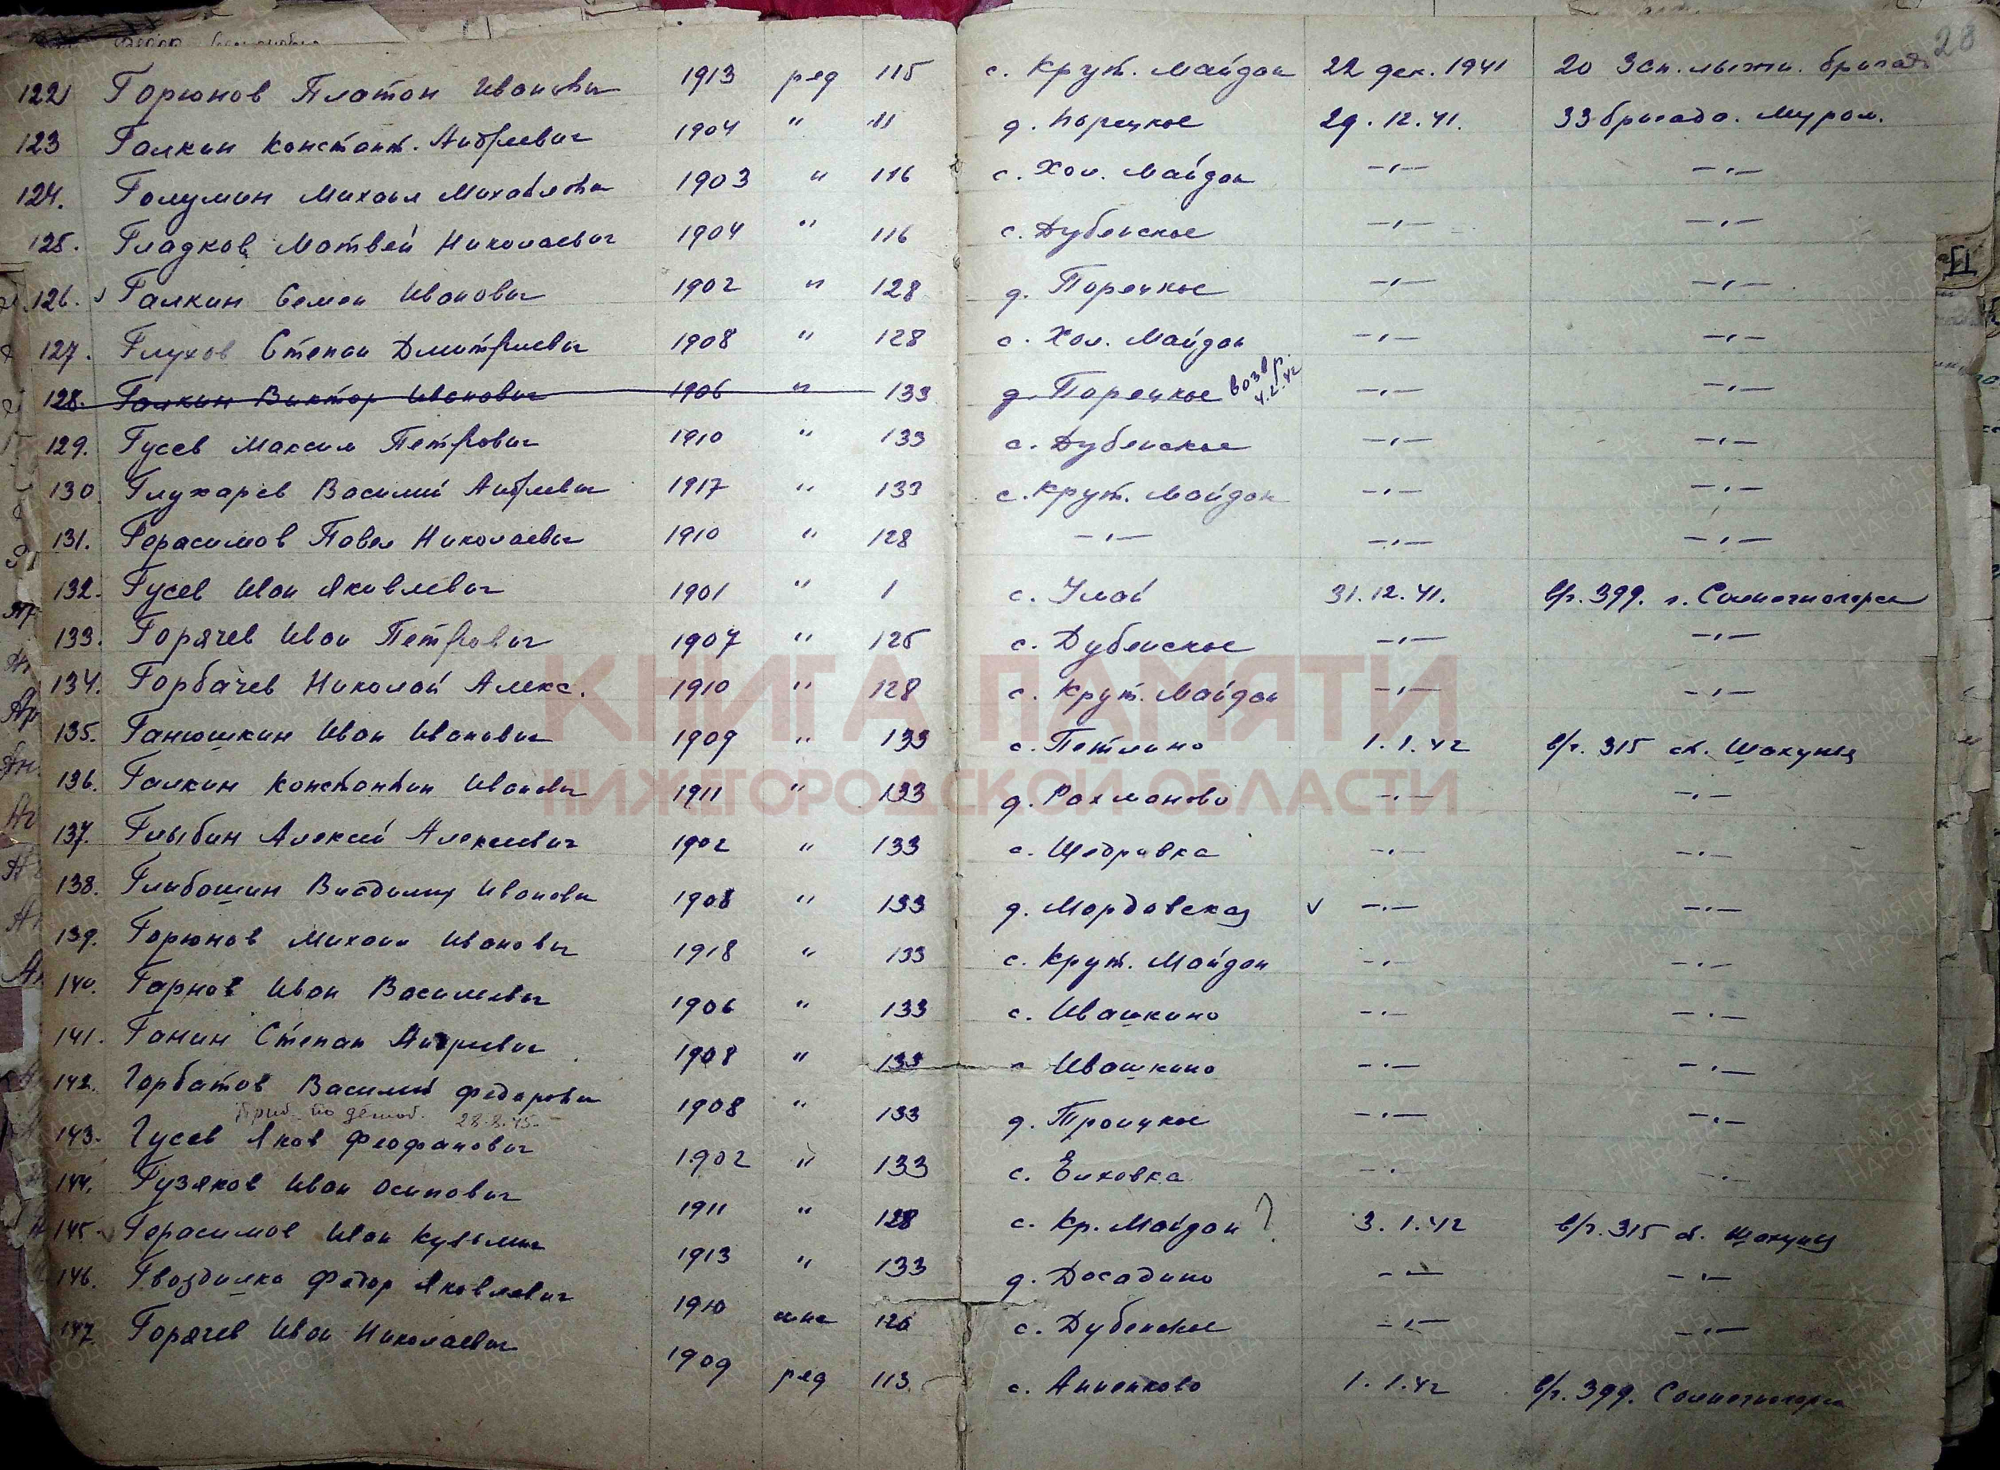 28
122 Горюнов Платон Иванович 1913 ряд 115 с. Крут. Майдан 22 дек. 1941 20 Зап. лыжн. бригад
123 Галкин Констант. Андреевич 1904 " 11 д. Порецкое 29.12.41. 33 бригада. Муром.
124. Голумин Михаил Михайлович 1903 " 116 с. Хол. Майдан —„— —„—
125. Гладков Матвей Николаевич 1904 " 116 с. Дубенское —„— —„—
126. Галкин Семен Иванович 1902 " 128 д. Порецкое —„— —„—
127. Глухов Степан Дмитриевич 1908 " 128 с. Хол. Майдан —„— —„—
128. Галкин Виктор Иванович 1906 " 133 д. Порецкое возвр. 4.2.42 —„— —„—
129. Гусев Максим Петрович 1910 " 133 с. Дубенское —„— —„—
130 Глухарев Василий Андреевич 1917 " 133 с. Крут. Майдан —„— —„—
131. Герасимов Павел Николаевич 1910 " 128 —„— —„— —„—
132. Гусев Иван Яковлевич 1901 " 1 с. Умай 31.12.41. в/ч. 399. г. Солнечногорск
133. Горячев Иван Петрович 1907 " 125 с. Дубенское —„— —„—
134. Горбачев Николай Алекс. 1910 " 128 с. Крут. Майдан —„— —„—
135. Ганюшкин Иван Иванович 1909 " 133 с. Петлино 1.1.42 в/ч. 315 ст. Шакунья
136. Галкин Константин Иванович 1911 " 133 д. Рахманово —„— —„—
137. Глыбин Алексей Алексеевич 1902 " 133 с. Щедровка —„— —„—
138. Глибошин Владимир Иванович 1908 " 133 д. Мордовская —„— —„—
139. Горюнов Михаил Иванович 1918 " 133 с. Крут. Майдан —„— —„—
140. Гарнов Иван Васильевич 1906 " 133 с. Ивашкино —„— —„—
141. Ганин Степан Андреевич 1908 " 133 с Ивашкино —„— —„—
142. Горбатов Василий Федорович 1908 " 133 д. Троицкое —„— —„—
Приб. по демоб. 28.8.45
143. Гусев Яков Феофанович 1902 " 133 с. Елховка —„— —„—
144. Гузяков Иван Осипович 1911 " 128 с. Кр. Майдан ? 3.1.42 в/ч. 315 ст. Шакунья
145 Герасимов Иван Кузьмич 1913 " 133 д. Досадино —„— —„—
146. Гвоздилко Федор Яковлевич 1910 126 с. Дубенское —„— —„—
147. Горячев Иван Николаевич 1909 ряд 113 с. Анненково 1.1.42 в/ч. 399. Солнечногорск
КНИГА ПАМЯТИ
НИЖЕГОРОДСКОЙ ОБЛАСТИ
ПАМЯТЬ НАРОДА